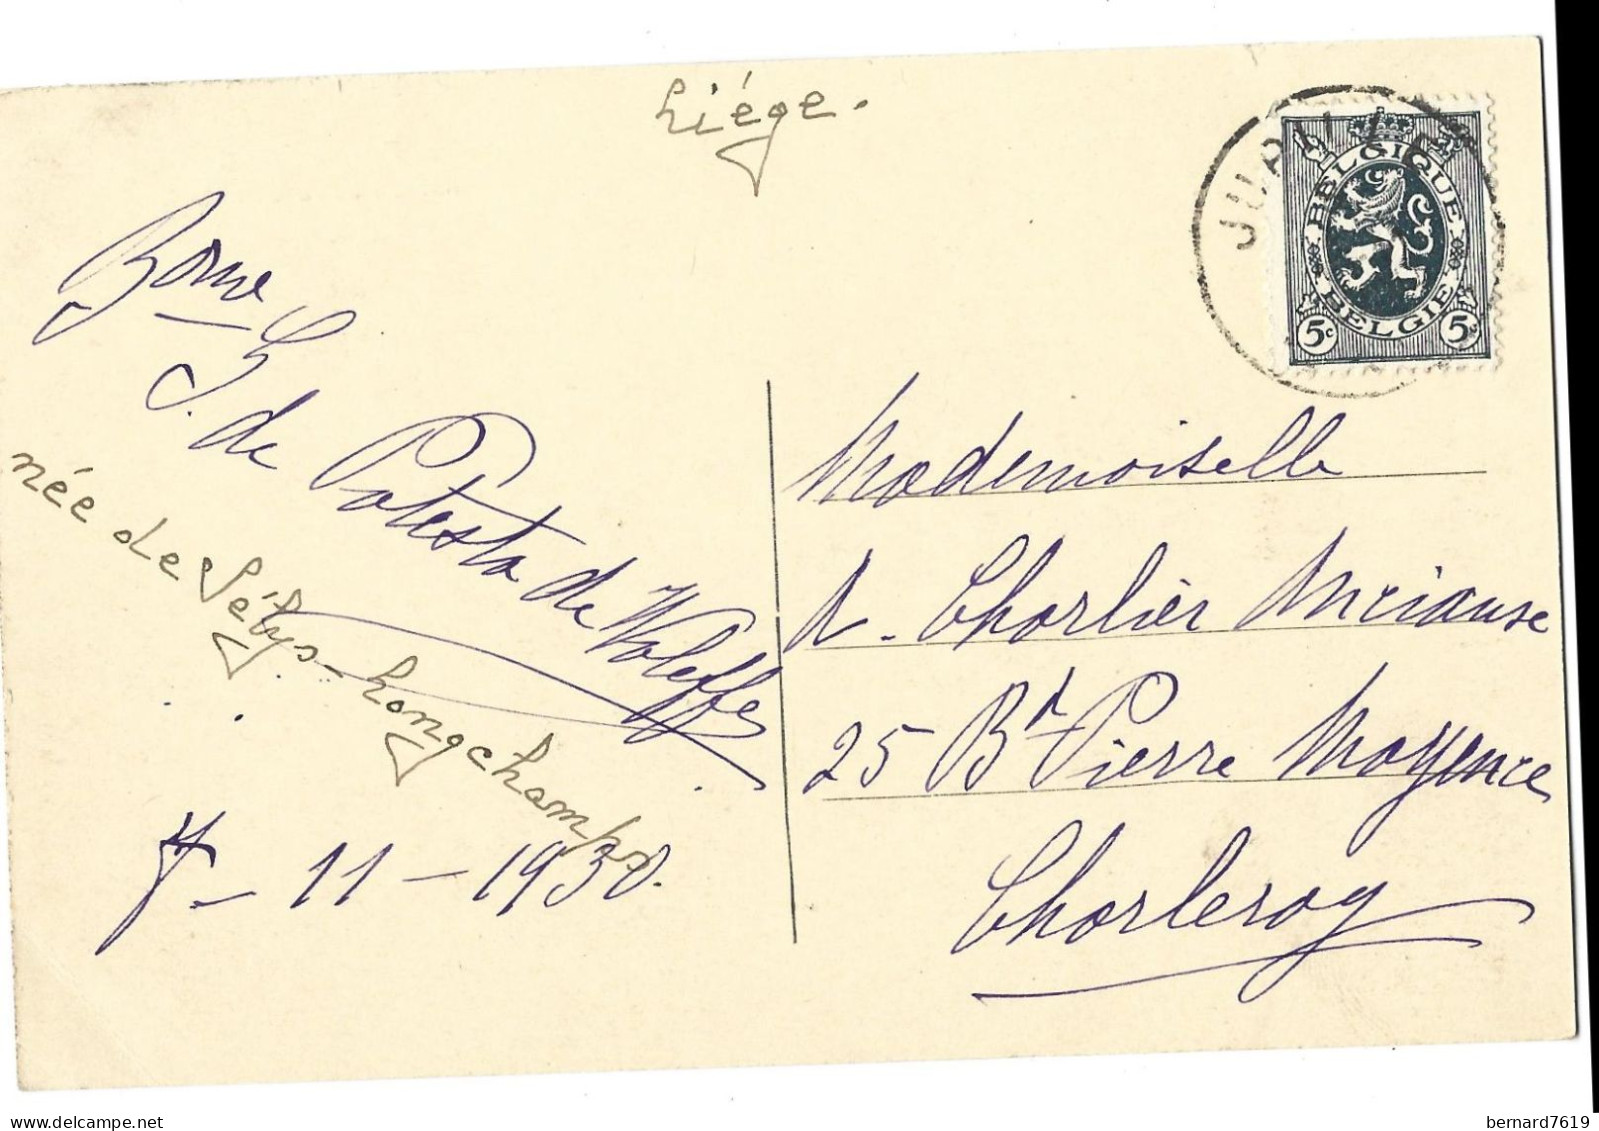 Liége.
JUPILLE
BELGIQUE
BELGIE
5c 5c
Bonne
G. de Potesta de Waleffe
née de Sélys-Longchamps
7-11-1930.
Mademoiselle
A. Charlier
25 Bd Pierre Mayence
Charleroy
www.delcampe.net
bernard7619